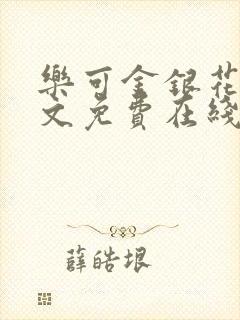 樂可金銀花
文免費在綫
薛皓垠